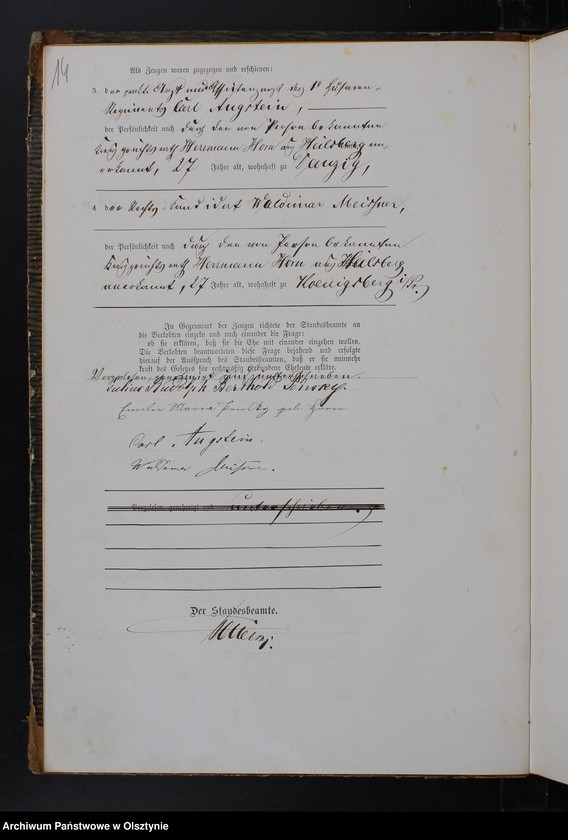 14
Als Zeugen waren zugezogen und erschienen:
3. der prakt. Arzt und Assistenzarzt des 1n Husaren-
Regiments Carl Augstein,
der Persönlichkeit nach durch den von Person bekannten
Herrmann Horn aus Heilsberg an
erkannt, 27 Jahre alt, wohnhaft zu Danzig,
4. der Rechts-Kandidat Waldimar Meissner,
der Persönlichkeit nach durch den von Person bekannten
Herrmann Horn aus Heilsberg
anerkannt, 27 Jahre alt, wohnhaft zu Koenigsberg i/Pr.
In Gegenwart der Zeugen richtete der Standesbeamte an
die Verlobten einzeln und nach einander die Frage:
ob sie erklären, daß sie die Ehe mit einander eingehen wollen.
Die Verlobten beantworteten diese Frage bejahend und erfolgte
hierauf der Ausspruch des Standesbeamten, daß er sie nunmehr
kraft des Gesetzes für rechtmäßig verbundene Eheleute erkläre.
Vorgelesen, genehmigt und unterschrieben.
Julius Rudolph Berthold
Emilie Maria geb. Horn
Carl Augstein.
Waldemar Meissner.
Vorgelesen, genehmigt und unterschrieben.
Der Standesbeamte.
Archiwum Państwowe w Olsztynie